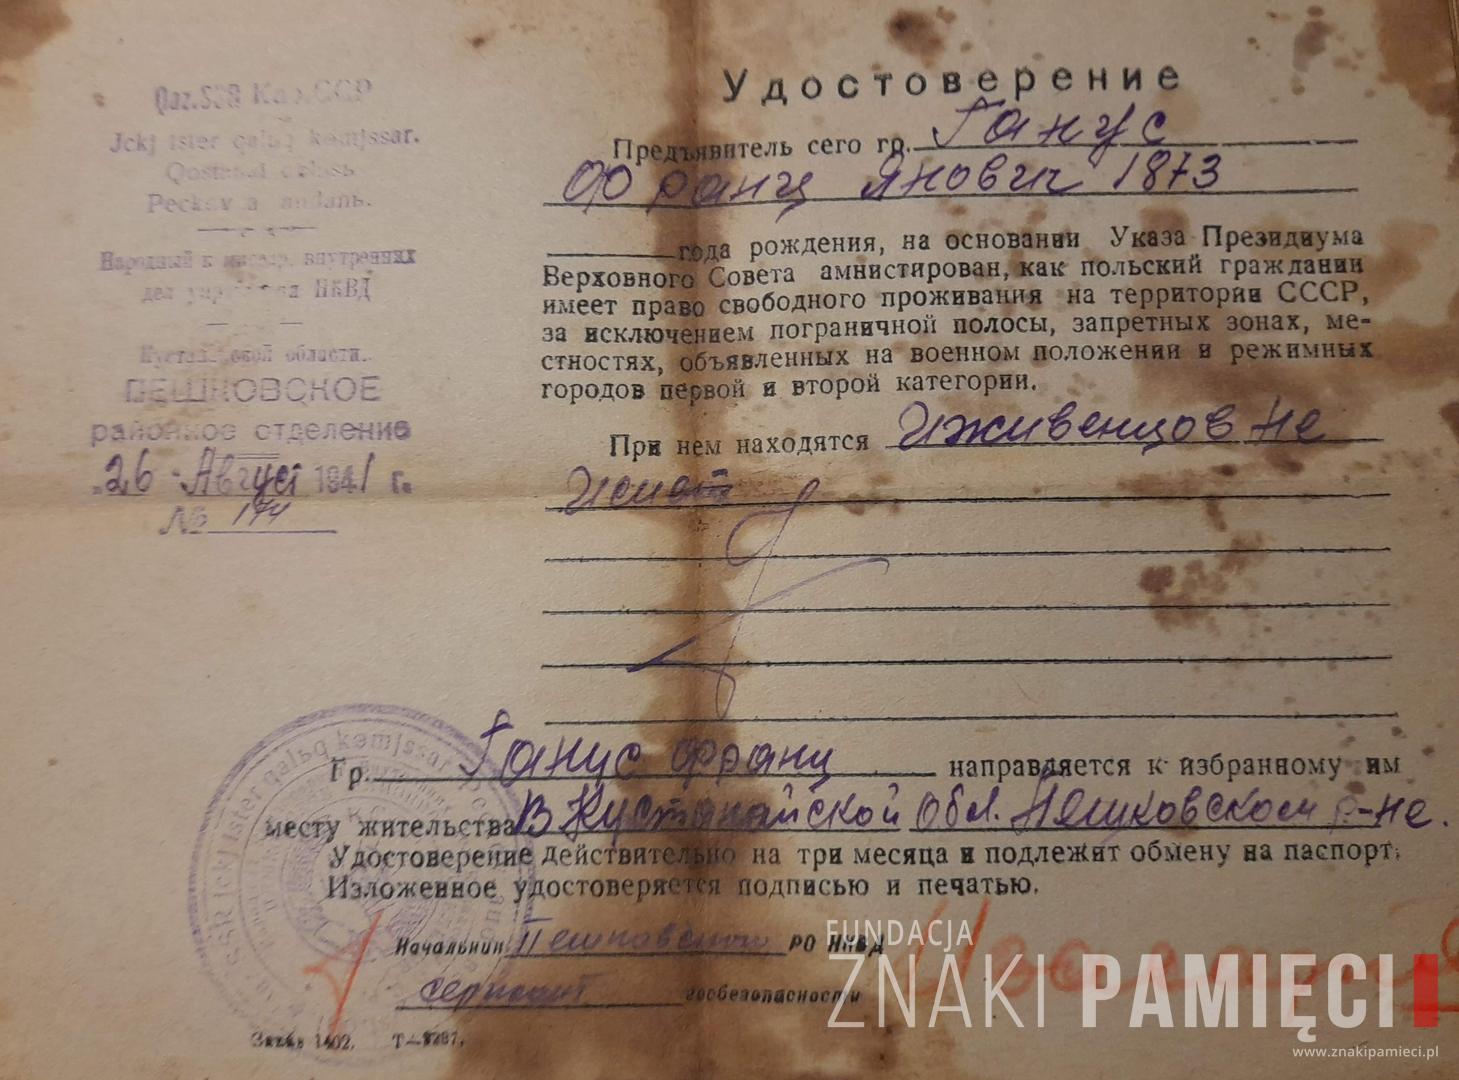 Qaz.SSR Каз.ССР
Jckj ister qalьq kəmjssar.
Qostanai oblasь
Peckov a audanь.
Народный комиссар. внутренних
дел управления НКВД
Кустанайской области.
ПЕШКОВСКОЕ
районное отделение
„26 Август 1941 г.
№ 174
Удостоверение
Предъявитель сего гр. Ганус
Франц Янович 1873
года рождения, на основании Указа Президиума
Верховного Совета амнистирован, как польский гражданин
имеет право свободного проживания на территории СССР,
за исключением пограничной полосы, запретных зонах, ме-
стностях, объявленных на военном положении и режимных
городов первой и второй категории.
При нем находятся Иживенцов не
Имеет
Гр. Ганус Франц направляется к избранному им
месту жительства В Кустанайской Обл. Пешковском р-не.
Удостоверение действительно на три месяца и подлежит обмену на паспорт.
Изложенное удостоверяется подписью и печатью.
Начальник Пешковского РО НКВД
сержант госбезопасности
Заказ 1402. Т—
FUNDACJA
ZNAKI PAMIĘCI
www.znakipamieci.pl